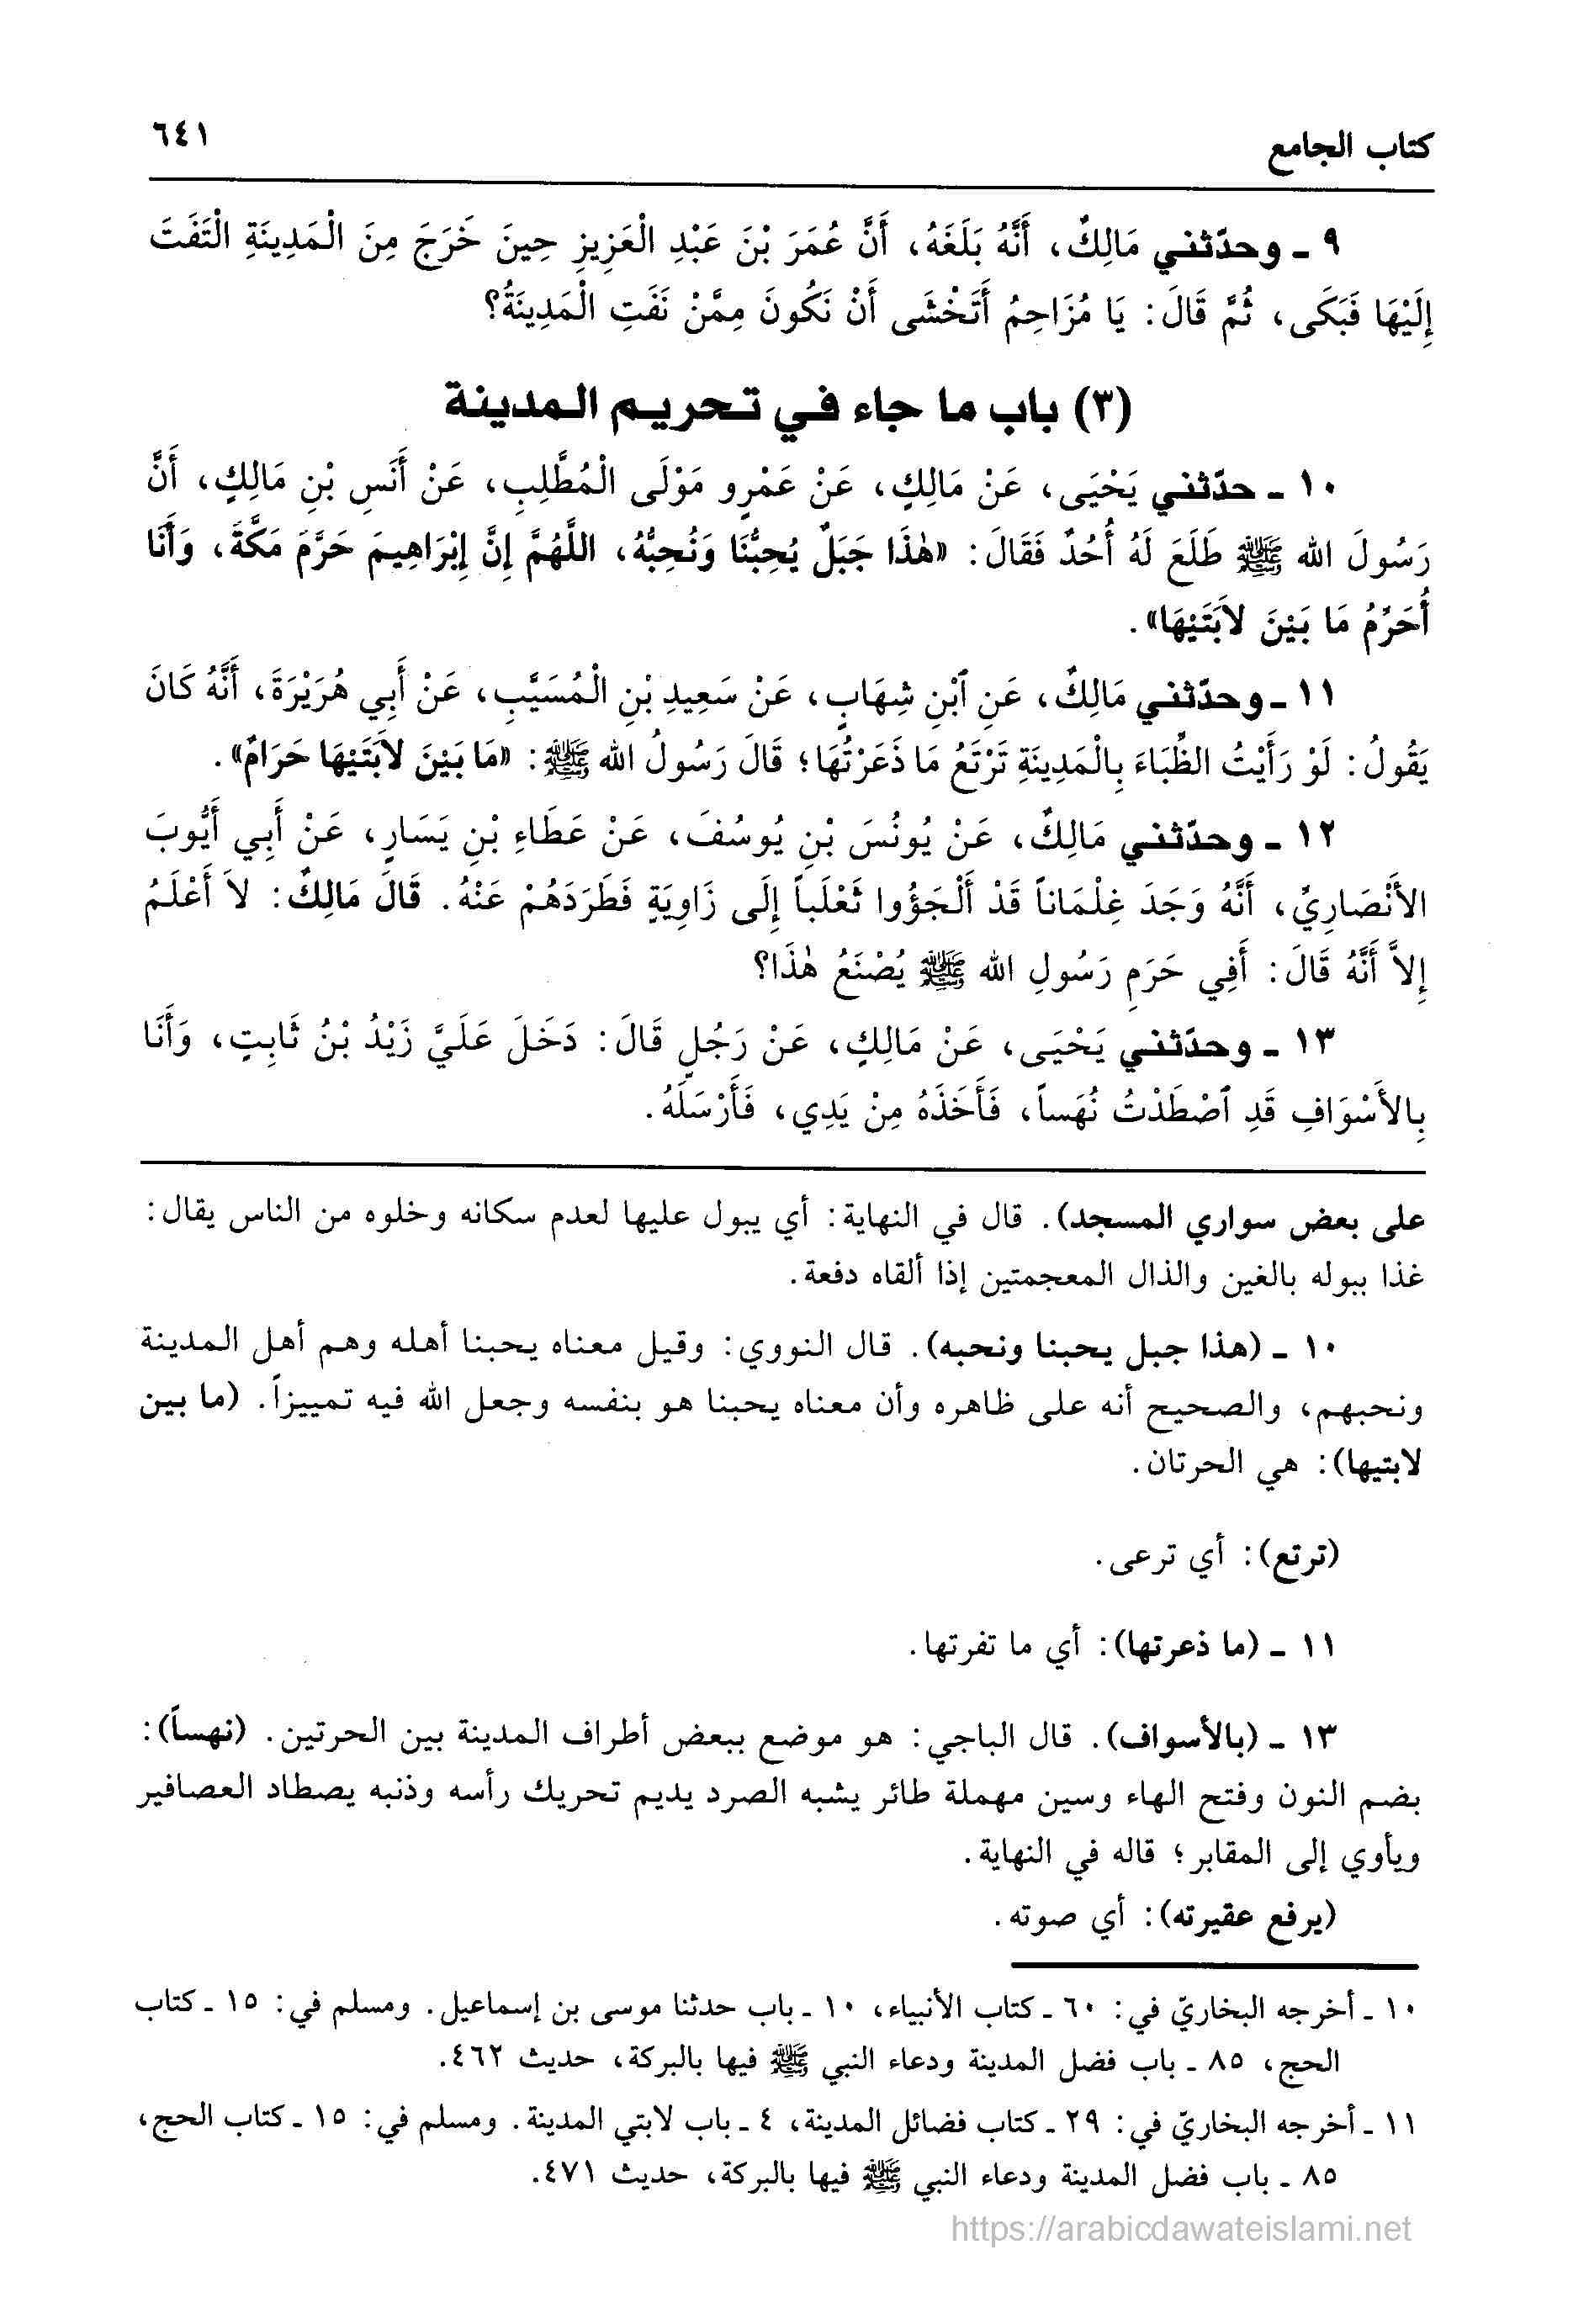 كتاب الجامع ٦٤١
٩ ـ وحدّثني مَالِكٌ، أَنَّهُ بَلَغَهُ، أَنَّ عُمَرَ بْنَ عَبْدِ الْعَزِيزِ حِينَ خَرَجَ مِنَ الْمَدِينَةِ الْتَفَتَ
إِلَيْهَا فَبَكَى، ثُمَّ قَالَ: يَا مُزَاحِمُ أَتَخْشَى أَنْ نَكُونَ مِمَّنْ نَفَتِ الْمَدِينَةُ؟
(٣) باب ما جاء في تحريم المدينة
١٠ ـ حدّثني يَحْيَى، عَنْ مَالِكٍ، عَنْ عَمْرٍو مَوْلَى الْمُطَّلِبِ، عَنْ أَنَسِ بْنِ مَالِكٍ، أَنَّ
رَسُولَ الله ﷺ طَلَعَ لَهُ أُحُدٌ فَقَالَ: «هٰذَا جَبَلٌ يُحِبُّنَا وَنُحِبُّهُ، اللَّهُمَّ إِنَّ إِبْرَاهِيمَ حَرَّمَ مَكَّةَ، وَأَنَا
أُحَرِّمُ مَا بَيْنَ لاَبَتَيْهَا».
١١ ـ وحدّثني مَالِكٌ، عَنِ ٱبْنِ شِهَابٍ، عَنْ سَعِيدِ بْنِ الْمُسَيَّبِ، عَنْ أَبِي هُرَيْرَةَ، أَنَّهُ كَانَ
يَقُولُ: لَوْ رَأَيْتُ الظِّبَاءَ بِالْمَدِينَةِ تَرْتَعُ مَا ذَعَرْتُهَا؛ قَالَ رَسُولُ الله ﷺ: «مَا بَيْنَ لاَبَتَيْهَا حَرَامٌ».
١٢ ـ وحدّثني مَالِكٌ، عَنْ يُونُسَ بْنِ يُوسُفَ، عَنْ عَطَاءِ بْنِ يَسَارٍ، عَنْ أَبِي أَيُّوبَ
الأَنْصَارِيِّ، أَنَّهُ وَجَدَ غِلْمَاناً قَدْ أَلْجَؤُوا ثَعْلَباً إِلَى زَاوِيَةٍ فَطَرَدَهُمْ عَنْهُ. قَالَ مَالِكٌ: لاَ أَعْلَمُ
إِلاَّ أَنَّهُ قَالَ: أَفِي حَرَمِ رَسُولِ الله ﷺ يُصْنَعُ هٰذَا؟
١٣ ـ وحدّثني يَحْيَى، عَنْ مَالِكٍ، عَنْ رَجُلٍ قَالَ: دَخَلَ عَلَيَّ زَيْدُ بْنُ ثَابِتٍ، وَأَنَا
بِالأَسْوَافِ قَدِ ٱصْطَدْتُ نُهَساً، فَأَخَذَهُ مِنْ يَدِي، فَأَرْسَلَهُ.
على بعض سواري المسجد). قال في النهاية: أي يبول عليها لعدم سكانه وخلوه من الناس يقال:
غذا ببوله بالغين والذال المعجمتين إذا ألقاه دفعة.
١٠ ـ (هذا جبل يحبنا ونحبه). قال النووي: وقيل معناه يحبنا أهله وهم أهل المدينة
ونحبهم، والصحيح أنه على ظاهره وأن معناه يحبنا هو بنفسه وجعل الله فيه تمييزاً. (ما بين
لابتيها): هي الحرتان.
(ترتع): أي ترعى.
١١ ـ (ما ذعرتها): أي ما تفرتها.
١٣ ـ (بالأسواف). قال الباجي: هو موضع ببعض أطراف المدينة بين الحرتين. (نهساً):
بضم النون وفتح الهاء وسين مهملة طائر يشبه الصرد يديم تحريك رأسه وذنبه يصطاد العصافير
ويأوي إلى المقابر؛ قاله في النهاية.
(يرفع عقيرته): أي صوته.
١٠ ـ أخرجه البخاريّ في: ٦٠ ـ كتاب الأنبياء، ١٠ ـ باب حدثنا موسى بن إسماعيل. ومسلم في: ١٥ ـ كتاب
الحج، ٨٥ ـ باب فضل المدينة ودعاء النبي ﷺ فيها بالبركة، حديث ٤٦٢.
١١ ـ أخرجه البخاريّ في: ٢٩ ـ كتاب فضائل المدينة، ٤ ـ باب لابتي المدينة. ومسلم في: ١٥ ـ كتاب الحج،
٨٥ ـ باب فضل المدينة ودعاء النبي ﷺ فيها بالبركة، حديث ٤٧١.
https://arabicdawateislami.net